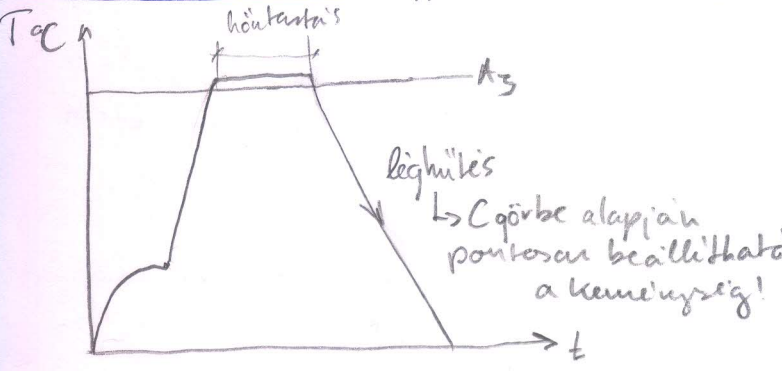 T°C
hőntartás
A3
léghűtés
↳ C görbe alapján
pontosan beállítható
a keménység!
t